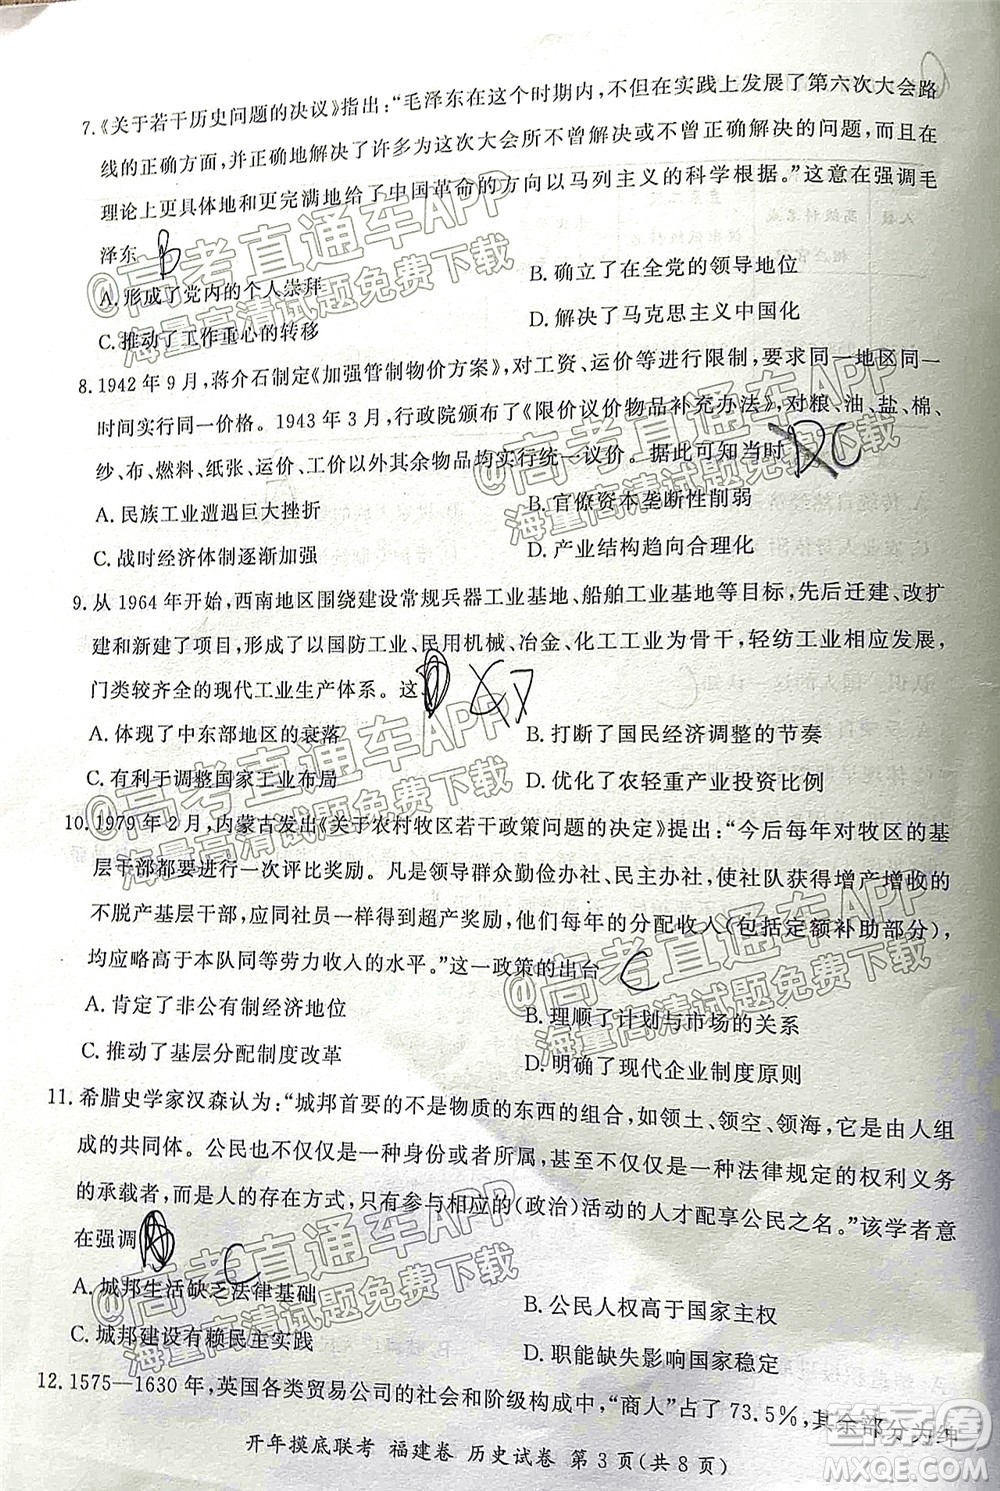 7.《关于若干历史问题的决议》指出:“毛泽东在这个时期内，不但在实践上发展了第六次大会路
线的正确方面，并正确地解决了许多为这次大会所不曾解决或不曾正确解决的问题，而且在
理论上更具体地和更完满地给了中国革命的方向以马列主义的科学根据。”这意在强调毛
泽东 B
A.形成了党内的个人崇拜
B.确立了在全党的领导地位
C.推动了工作重心的转移
D.解决了马克思主义中国化
8.1942年9月，蒋介石制定《加强管制物价方案》，对工资、运价等进行限制，要求同一地区同一
时间实行同一价格。1943年3月，行政院颁布了《限价议价物品补充办法》，对粮、油、盐、棉、
纱、布、燃料、纸张、运价、工价以外其余物品均实行统一议价。据此可知当时 C
A.民族工业遭遇巨大挫折
B.官僚资本垄断性削弱
C.战时经济体制逐渐加强
D.产业结构趋向合理化
9.从1964年开始，西南地区围绕建设常规兵器工业基地、船舶工业基地等，先后迁建、改扩
建和新建了项目，形成了以国防工业、民用机械、冶金、化工工业为骨干，轻纺工业相应发展，
门类较齐全的现代工业生产体系。这
A.体现了中东部地区的衰落
B.打断了国民经济调整的节奏
C.有利于调整国家工业布局
D.优化了农轻重产业投资比例
10.1979年2月，内蒙古发出《关于农村牧区若干政策问题的决定》提出:“今后每年对牧区的基
层干部都要进行一次评比奖励。凡是领导群众勤俭办社、民主办社，使社队获得增产增收的
不脱产基层干部，应同社员一样得到超产奖励，他们每年的分配收入(包括定额补助部分)，
均应略高于本队同等劳力收入的水平。”这一政策的出台 C
A.肯定了非公有制经济地位
B.理顺了计划与市场的关系
C.推动了基层分配制度改革
D.明确了现代企业制度原则
11.希腊史学家汉森认为:“城邦首要的不是物质的东西的组合，如领土、领空、领海，而是由人组
成的共同体。公民也不仅仅是一种身份或者所属，甚至不仅仅是一种法律规定的权利义务
的承载者，而是人的存在方式，只有参与相应的(政治)活动的人才配享公民之名。”该学者意
在强调 C
A.城邦生活缺乏法律基础
B.公民人权高于国家主权
C.城邦建设有赖民主实践
D.职能缺失影响国家稳定
12.1575—1630年，英国各类贸易公司的社会和阶级构成中，“商人”占了73.5%，其余部分为绅
开年摸底联考 福建卷 历史试卷 第3页(共8页)
@高考直通车APP
海量高清试题免费下载
@高考直通车APP
海量高清试题免费下载
@高考直通车APP
海量高清试题免费下载
@高考直通车APP
海量高清试题免费下载
@高考直通车APP
海量高清试题免费下载
@高考直通车APP
海量高清试题免费下载
答案圈
MXQE.COM